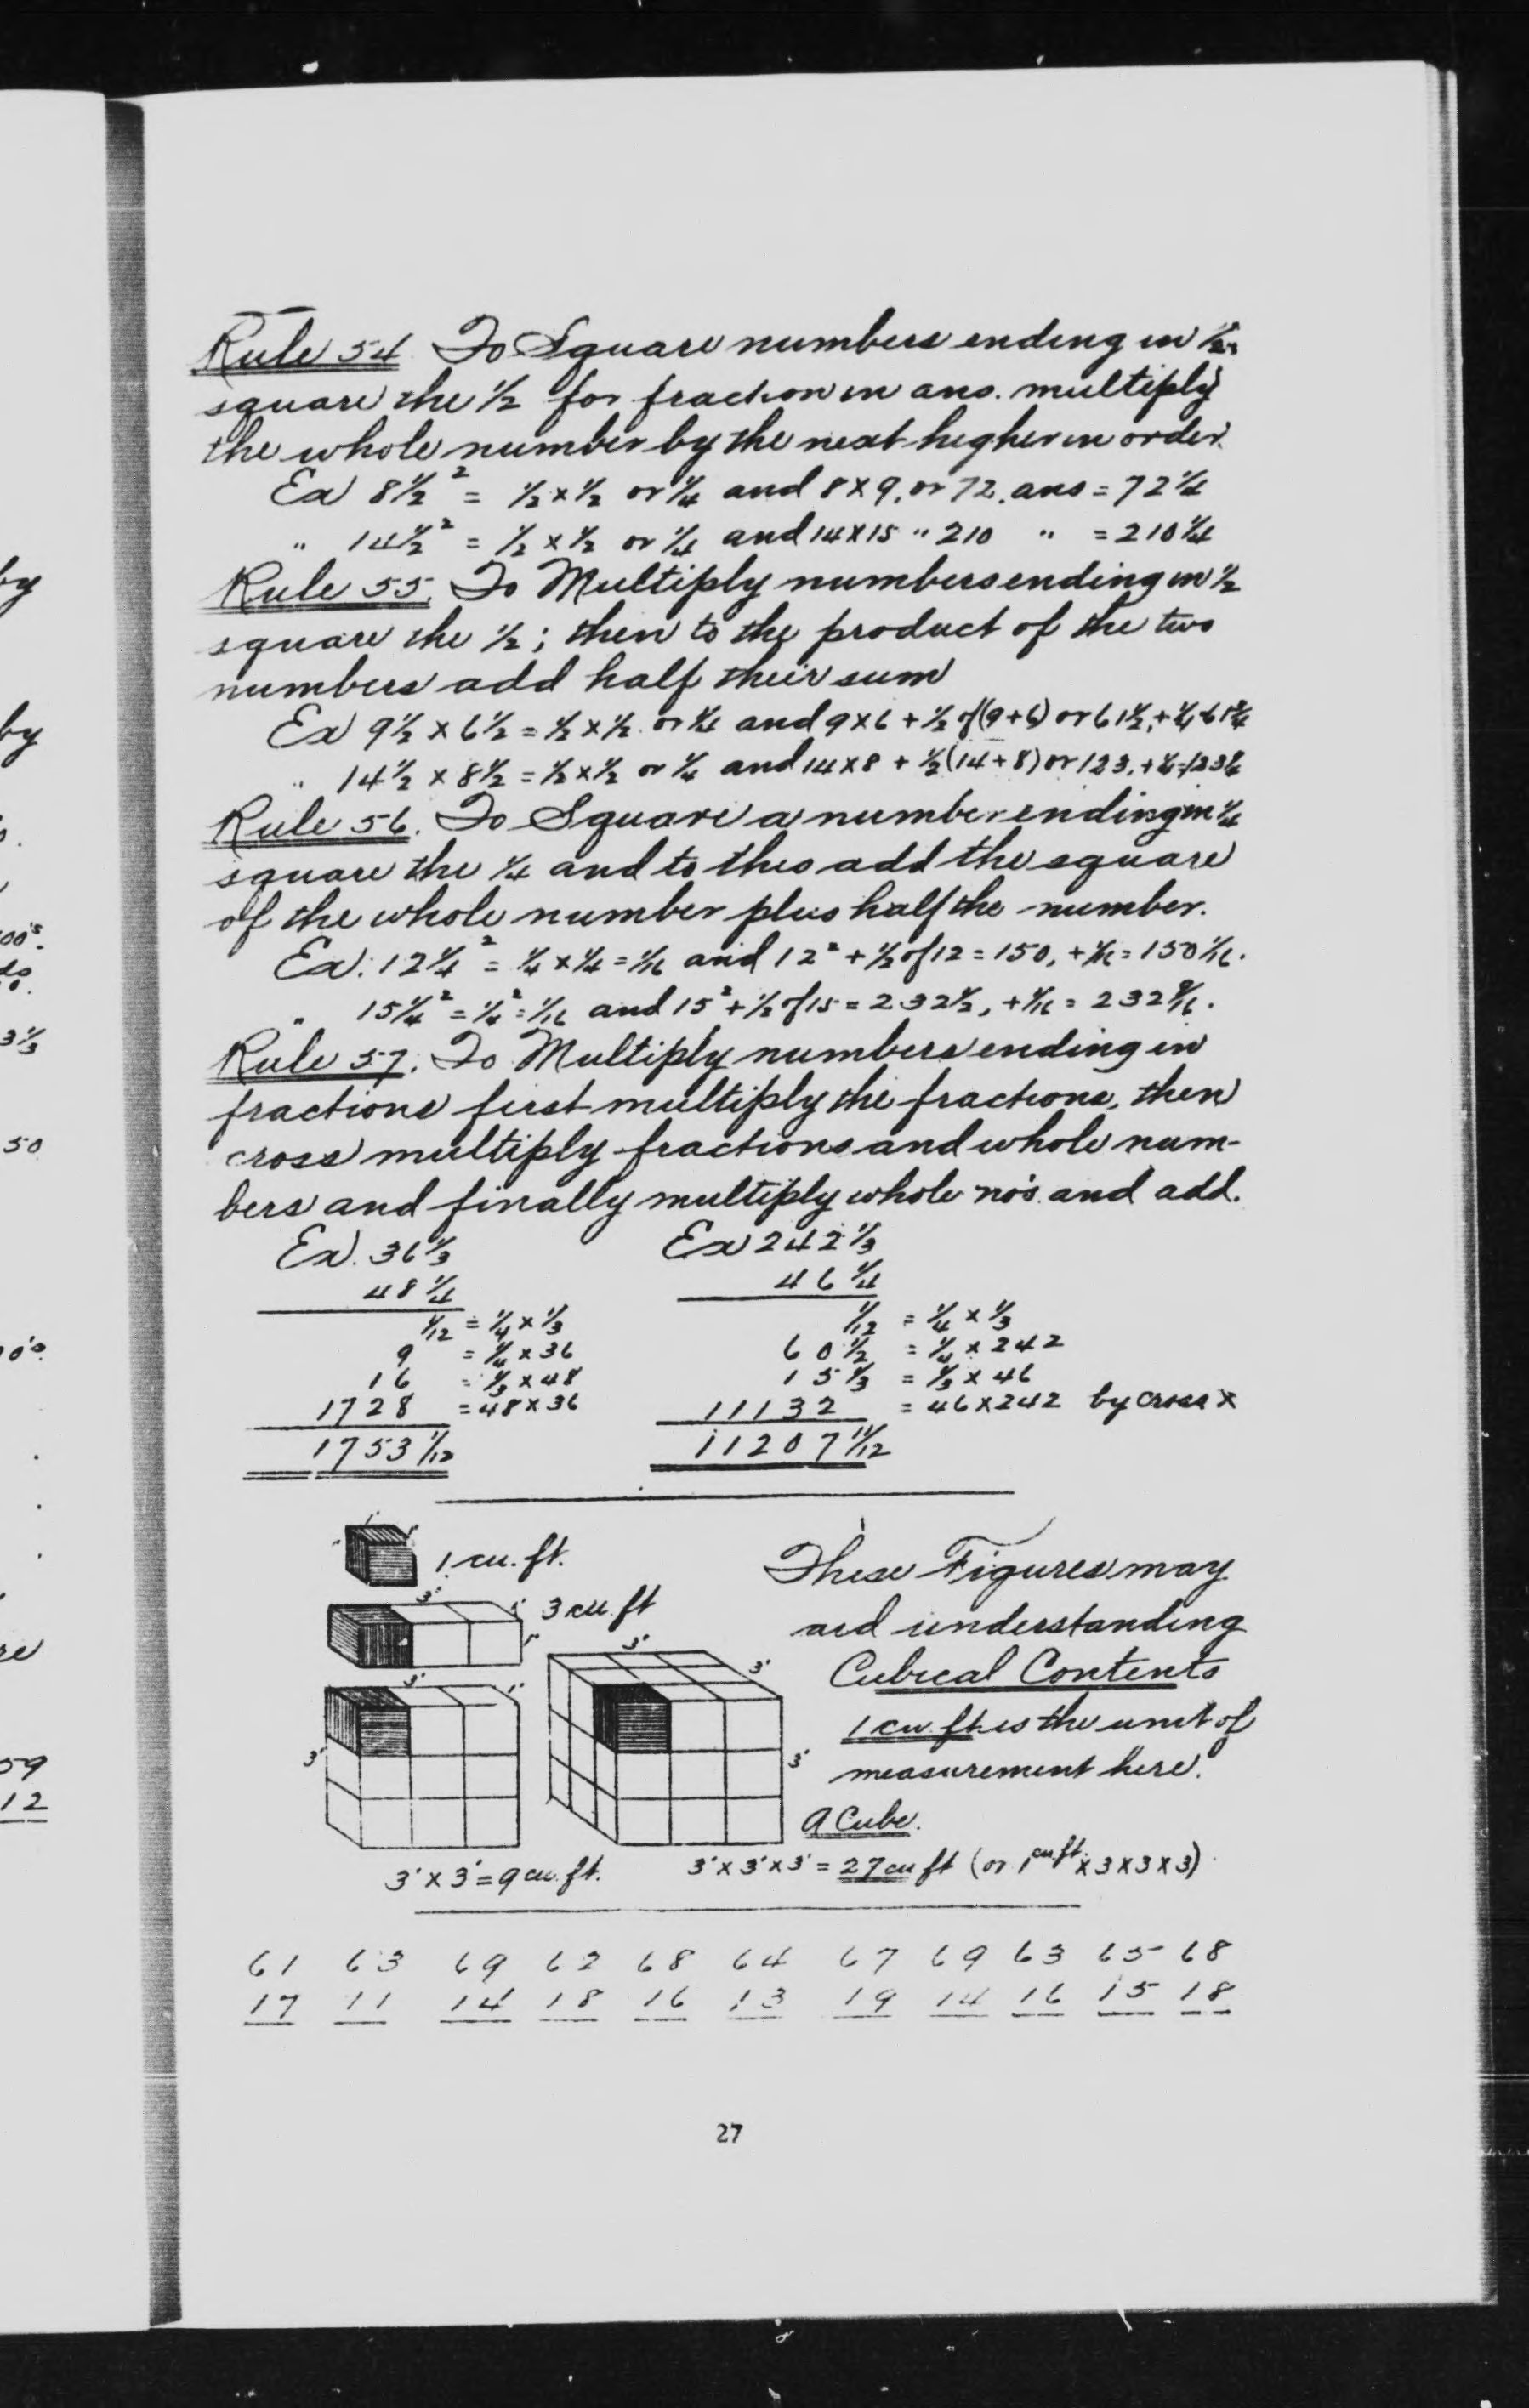 Rule 54 To Square numbers ending in ½,
square the ½ for fraction in ans. multiply
the whole number by the next higher in order.
Ex 8½² = ½ × ½ or ¼ and 8 × 9, or 72, ans = 72¼
" 14½² = ½ × ½ or ¼ and 14 × 15 " 210 " = 210¼
Rule 55. To Multiply numbers ending in ½
square the ½; then to the product of the two
numbers add half their sum
Ex 9½ × 6½ = ½ × ½ or ¼ and 9 × 6 + ½ of (9+6) or 61½, + ¼ = 61¾
" 14½ × 8½ = ½ × ½ or ¼ and 14 × 8 + ½ (14 + 8) or 123, + ¼ = 123¼
Rule 56. To Square a number ending in ¼
square the ¼ and to this add the square
of the whole number plus half the number.
Ex. 12¼² = ¼ × ¼ = 1/16 and 12² + ½ of 12 = 150, + 1/16 = 150 1/16.
" 15¼² = ¼² = 1/16 and 15² + ½ of 15 = 232½, + 1/16 = 232 9/16.
Rule 57. To Multiply numbers ending in
fractions first multiply the fractions, then
cross multiply fractions and whole num-
bers and finally multiply whole no's. and add.
Ex. 36⅓ Ex 242⅓
48¼ 46¼
1/12 = ¼ × ⅓ 1/12 = ¼ × ⅓
9 = ¼ × 36 60½ = ¼ × 242
16 = ⅓ × 48 15⅓ = ⅓ × 46
1728 = 48 × 36 11132 = 46 × 242 by cross ×
1753 1/12 11207 11/12
1 cu. ft.
These Figures may
3' 3 cu. ft
aid understanding
3' 3'
Cubical Contents
3' 1'
1 cu. ft. is the unit of
3' 3'
measurement here.
A Cube.
3' × 3' = 9 cu. ft. 3' × 3' × 3' = 27 cu ft (or 1 cu. ft. × 3 × 3 × 3)
61 63 69 62 68 64 67 69 63 65 68
17 11 14 18 16 13 19 14 16 15 18
27
by
by
00's.
3⅓
50
0's.
59
12